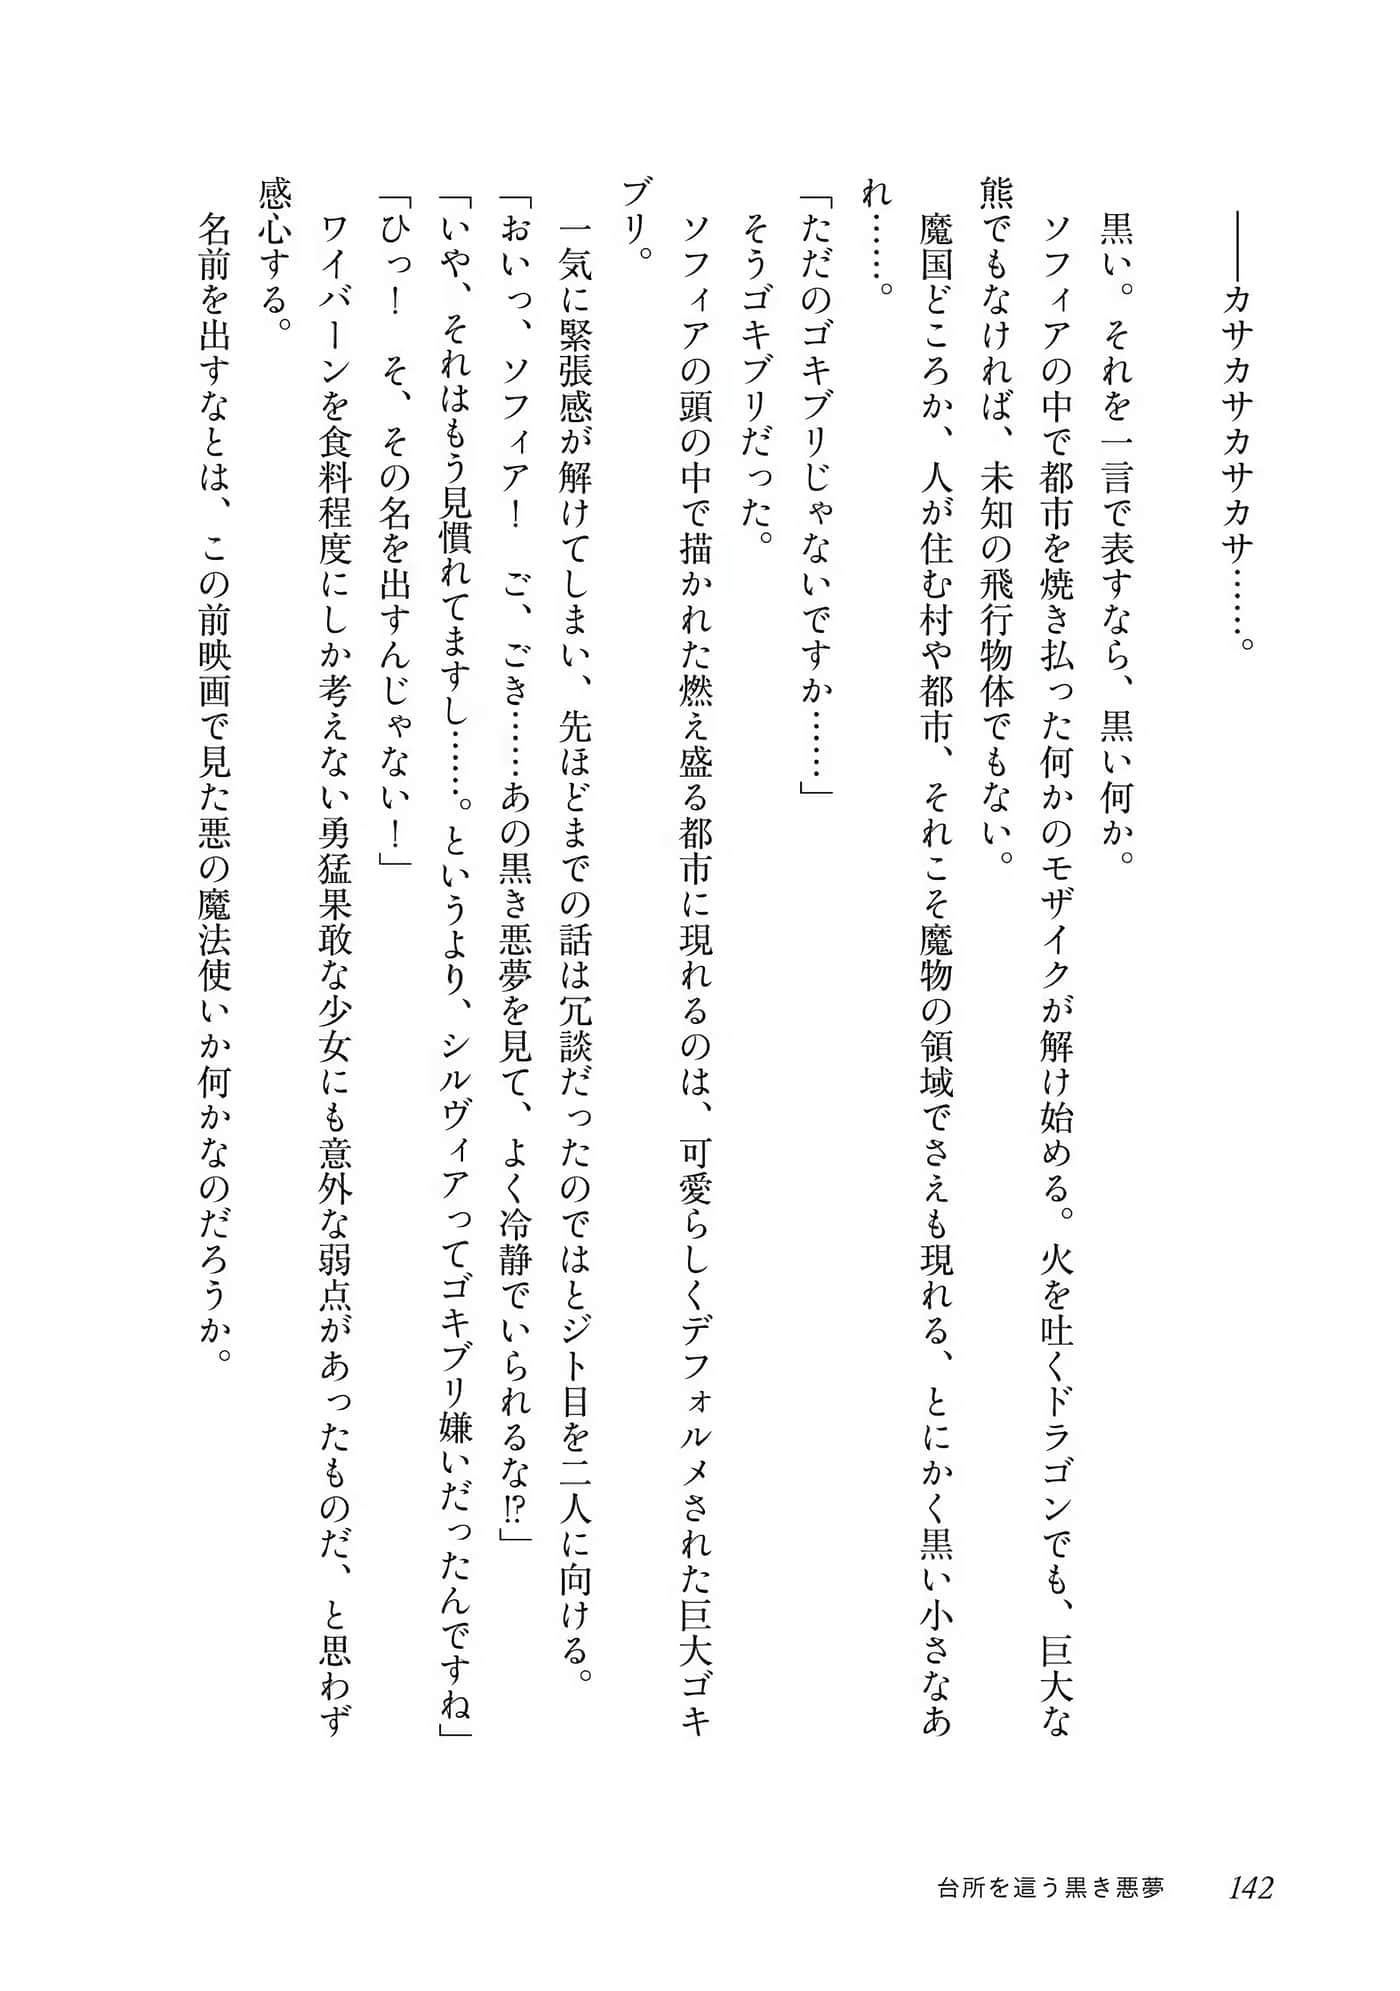 ――カサカサカサカサ……。
黒い。それを一言で表すなら、黒い何か。
ソフィアの中で都市を焼き払った何かのモザイクが解け始める。火を吐くドラゴンでも、巨大な
熊でもなければ、未知の飛行物体でもない。
魔国どころか、人が住む村や都市、それこそ魔物の領域でさえも現れる、とにかく黒い小さなあ
れ……。
「ただのゴキブリじゃないですか……」
そうゴキブリだった。
ソフィアの頭の中で描かれた燃え盛る都市に現れるのは、可愛らしくデフォルメされた巨大ゴキ
ブリ。
一気に緊張感が解けてしまい、先ほどまでの話は冗談だったのではとジト目を二人に向ける。
「おいっ、ソフィア！　ご、ごき……あの黒き悪夢を見て、よく冷静でいられるな⁉」
「いや、それはもう見慣れてますし……。というより、シルヴィアってゴキブリ嫌いだったんですね」
「ひっ！　そ、その名を出すんじゃない！」
ワイバーンを食料程度にしか考えない勇猛果敢な少女にも意外な弱点があったものだ、と思わず
感心する。
名前を出すなとは、この前映画で見た悪の魔法使いか何かなのだろうか。
台所を這う黒き悪夢
142